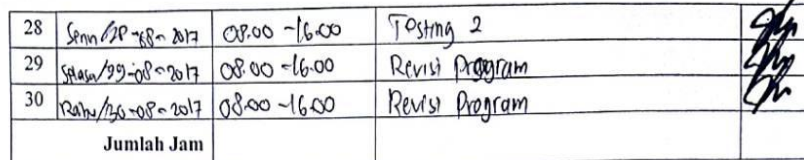 28 Senin/28-08-2017 08.00 -16.00 Testing 2
29 Selasa/29-08-2017 08.00 -16.00 Revisi Program
30 Rabu/30-08-2017 08.00 -16.00 Revisi Program
Jumlah Jam